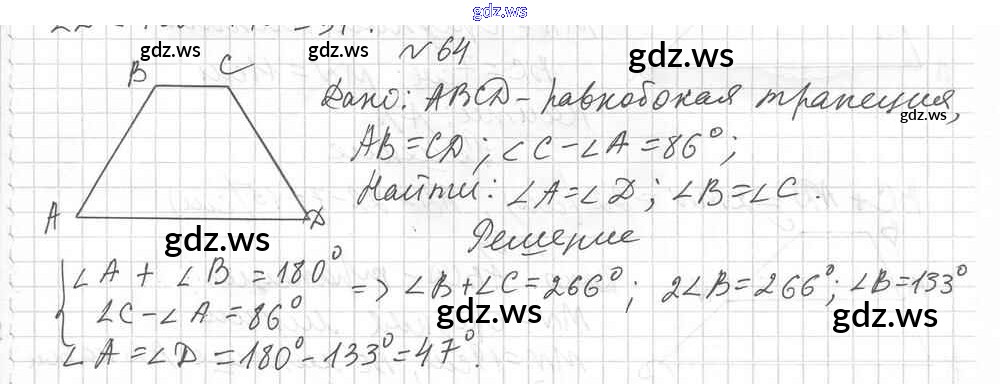 gdz.ws
№ 64
gdz.ws gdz.ws gdz.ws
B C
Дано: ABCD - равнобокая трапеция,
gdz.ws
AB = CD; ∠C - ∠A = 86°;
Найти: ∠A = ∠D; ∠B = ∠C.
A D
gdz.ws
Решение
∠A + ∠B = 180°
∠C - ∠A = 86°
=> ∠B + ∠C = 266°; 2∠B = 266°; ∠B = 133°
gdz.ws gdz.ws
∠A = ∠D = 180° - 133° = 47°.